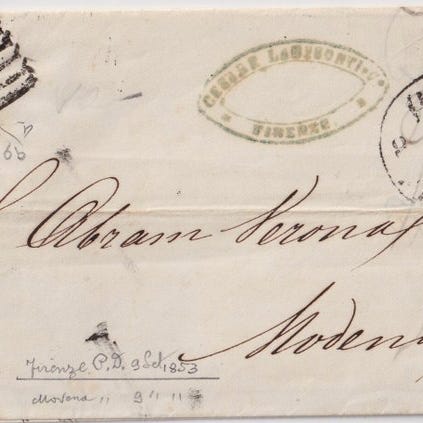 CESARE
FIRENZE
6b
Abram Verona
Modena
Firenze P.D. 9 Set 1853
Modena " 9 " "